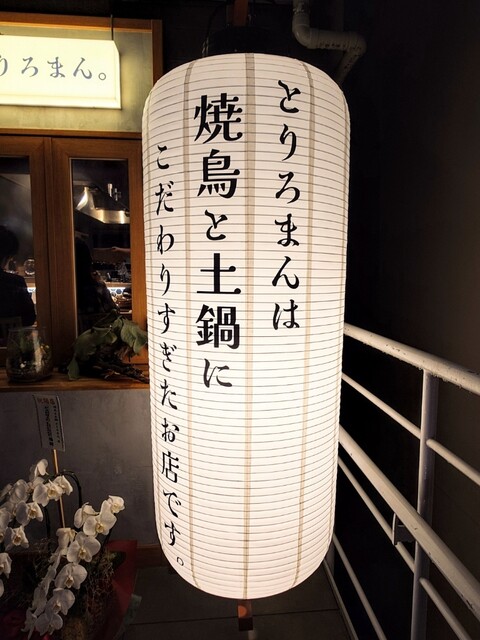 りろまん。
とりろまんは
焼鳥と土鍋に
こだわりすぎたお店です。